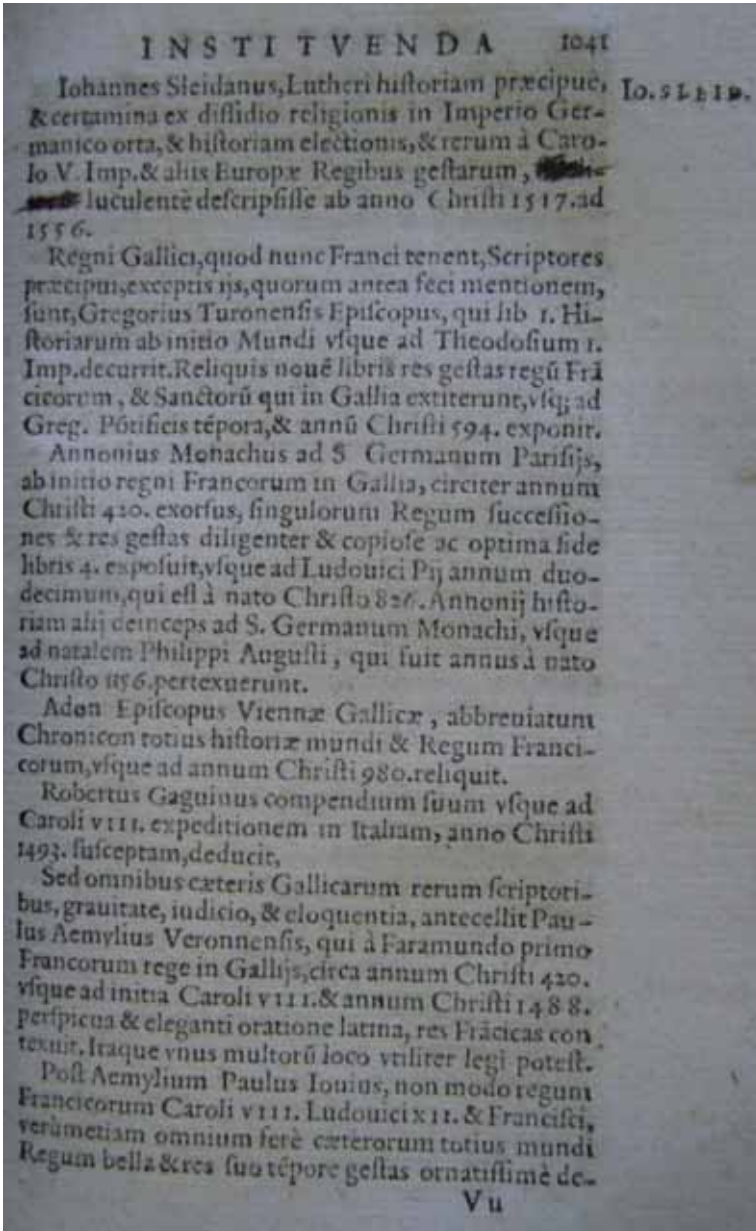 INSTITVENDA 1041
Iohannes Sleidanus, Lutheri historiam præcipue, Io. SLEID.
& certamina ex dissidio religionis in Imperio Ger-
manico orta, & historiam electionis, & rerum à Caro-
lo V. Imp. & aliis Europæ Regibus gestarum,
luculentè descripsisse ab anno Christi 1517. ad
1556.
Regni Gallici, quod nunc Franci tenent, Scriptores
præcipui, exceptis ijs, quorum antea feci mentionem,
sunt, Gregorius Turonensis Episcopus, qui lib 1. Hi-
storiarum ab initio Mundi vsque ad Theodosium 1.
Imp. decurrit. Reliquis nouē libris res gestas regū Frā
cicorum, & Sanctorū qui in Gallia extiterunt, vsq; ad
Greg. Pōtificis tēpora, & annū Christi 594. exponit.
Annonius Monachus ad S Germanum Parisijs,
ab initio regni Francorum in Gallia, circiter annum
Christi 420. exorsus, singulorum Regum successio-
nes & res gestas diligenter & copiose ac optima fide
libris 4. exposuit, vsque ad Ludouici Pij annum duo-
decimum, qui est à nato Christo 826. Annonij histo-
riam alij deinceps ad S. Germanum Monachi, vsque
ad natalem Philippi Augusti, qui fuit annus à nato
Christo 1156. pertexuerunt.
Adon Episcopus Viennæ Gallicæ, abbreuiatum
Chronicon totius historiæ mundi & Regum Franci-
corum, vsque ad annum Christi 980. reliquit.
Robertus Gaguinus compendium suum vsque ad
Caroli VIII. expeditionem in Italiam, anno Christi
1493. susceptam, deducit.
Sed omnibus cæteris Gallicarum rerum scriptori-
bus, grauitate, iudicio, & eloquentia, antecellit Pau-
lus Aemylius Veronnensis, qui à Faramundo primo
Francorum rege in Gallijs, circa annum Christi 420.
vsque ad initia Caroli VIII. & annum Christi 1488.
perspicua & eleganti oratione latina, res Frācicas con
texuit. Itaque vnus multorū loco vtiliter legi potest.
Post Aemylium Paulus Iouius, non modo regum
Francicorum Caroli VIII. Ludouici XII. & Francisci,
verùm etiam omnium ferè cæterorum totius mundi
Regum bella & res suo tēpore gestas ornatissimè de-
Vu